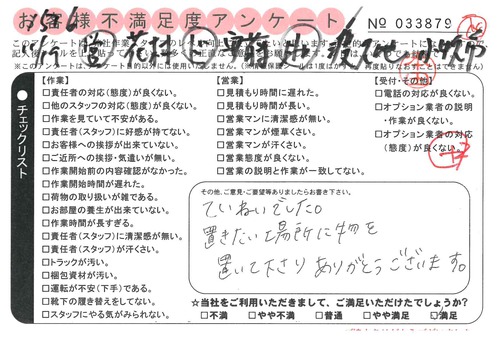 お客様不満足度アンケート
No 033879
【作業】
□責任者の対応(態度)が良くない。
□他のスタッフの対応(態度)が良くない。
□作業を見ていて不安がある。
□責任者(スタッフ)に好感が持てない。
□お客様への挨拶が出来ていない。
□ご近所への挨拶・気遣いが無い。
□作業開始前の内容確認がなかった。
□作業開始時間が遅れた。
□荷物の取り扱いが雑である。
□お部屋の養生が出来ていない。
□作業時間が長すぎる。
□責任者(スタッフ)に清潔感が無い。
□責任者(スタッフ)が汗くさい。
□トラックが汚い。
□梱包資材が汚い。
□運転が不安(下手)である。
□靴下の履き替えをしてない。
□スタッフにやる気がみられない。
【営業】
□見積もり時間に遅れた。
□見積もり時間が長い。
□営業マンに清潔感が無い。
□営業マンが煙草くさい。
□営業マンが汗くさい。
□営業態度が良くない。
□営業の説明と作業が一致してない。
【受付・その他】
□電話の対応が良くない。
□オプション業者の説明
・作業が良くない。
□オプション業者の対応
(態度)が良くない。
●チェックリスト
その他、ご意見・ご要望等ありましたらお書き下さい。
ていねいでした。
置きたい場所に物を
置いて下さりありがとうございます。
☆当社をご利用いただきまして、ご満足いただけたでしょうか?
□不満 □やや不満 □普通 □やや満足 □満足